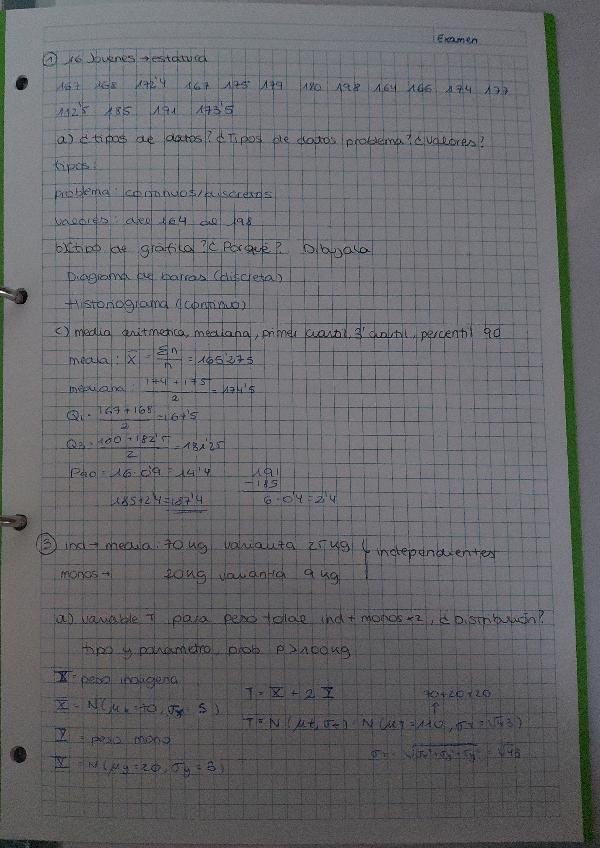 Examen
1 16 Jovenes → estatura
167 168 172'4 167 175 179 180 198 164 166 174 177
112'5 185 191 173'5
a) ¿tipos de datos? ¿Tipos de datos problema? ¿Valores?
tipos:
problema: continuos/discretos
valores: del 164 al 198
b) ¿tipo de gráfica? ¿Porqué? Dibujala
Diagrama de barras (discreta)
Histonograma (continuo)
c) media aritmetica, mediana, primer cuartil, 3' cuartil, percentil 90
media: X = Σn/n = 165'275
mediana: 174 + 175 / 2 = 174'5
Q1 = 167+168 / 2 = 167'5
Q3 = 180 + 182'5 / 2 = 181'25
P90 = 16 · 0'9 = 14'4 191
- 185
185 + 2'4 = 187'4 6 · 0'4 = 2'4
3 ind → media: 70 kg varianza 25 kg } independientes
monos → 20 kg varianza 9 kg
a) variable T para peso total ind + monos × 2, ¿Distribución?
tipo y parámetro, prob P > 100 kg
X = peso indigena
T = X + 2 Y 70 + 20 + 20
X = N(μx = 70, σx = 5)
T = N(μt, σt) = N(μT = 110, σT = √43)
Y = peso mono
Y = N(μy = 20, σy = 3)